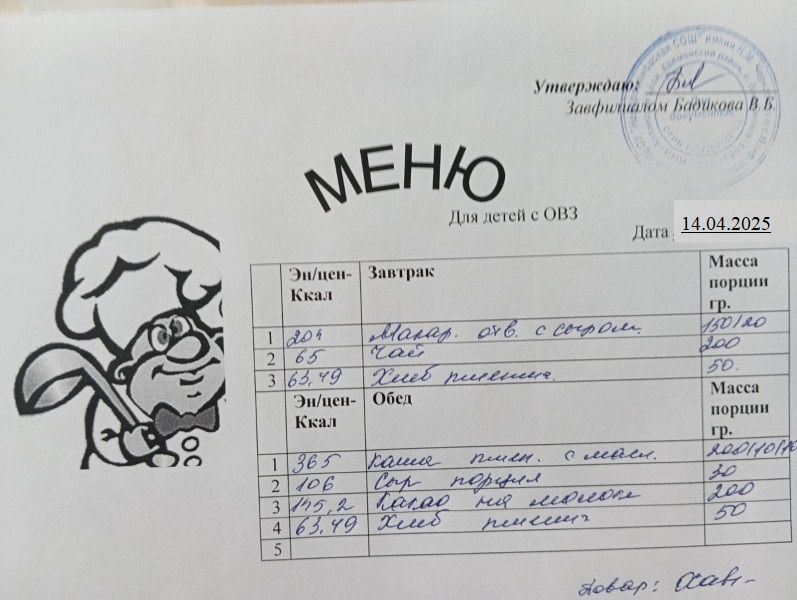 Утверждаю:
Завфилиалом Бадикова В.Б.
МЕНЮ
Для детей с ОВЗ
Дата 14.04.2025
Эн/цен-Ккал Завтрак Масса порции гр.
1 204 Макар. отв. с сыром. 150/20
2 65 Чай 200
3 63,49 Хлеб пшенич. 50.
Эн/цен-Ккал Обед Масса порции гр.
1 365 Каша пшен. с масл. 200/10/10
2 106 Сыр порция 30
3 145,2 Какао на молоке 200
4 63,49 Хлеб пшенич 50
5
Повар: